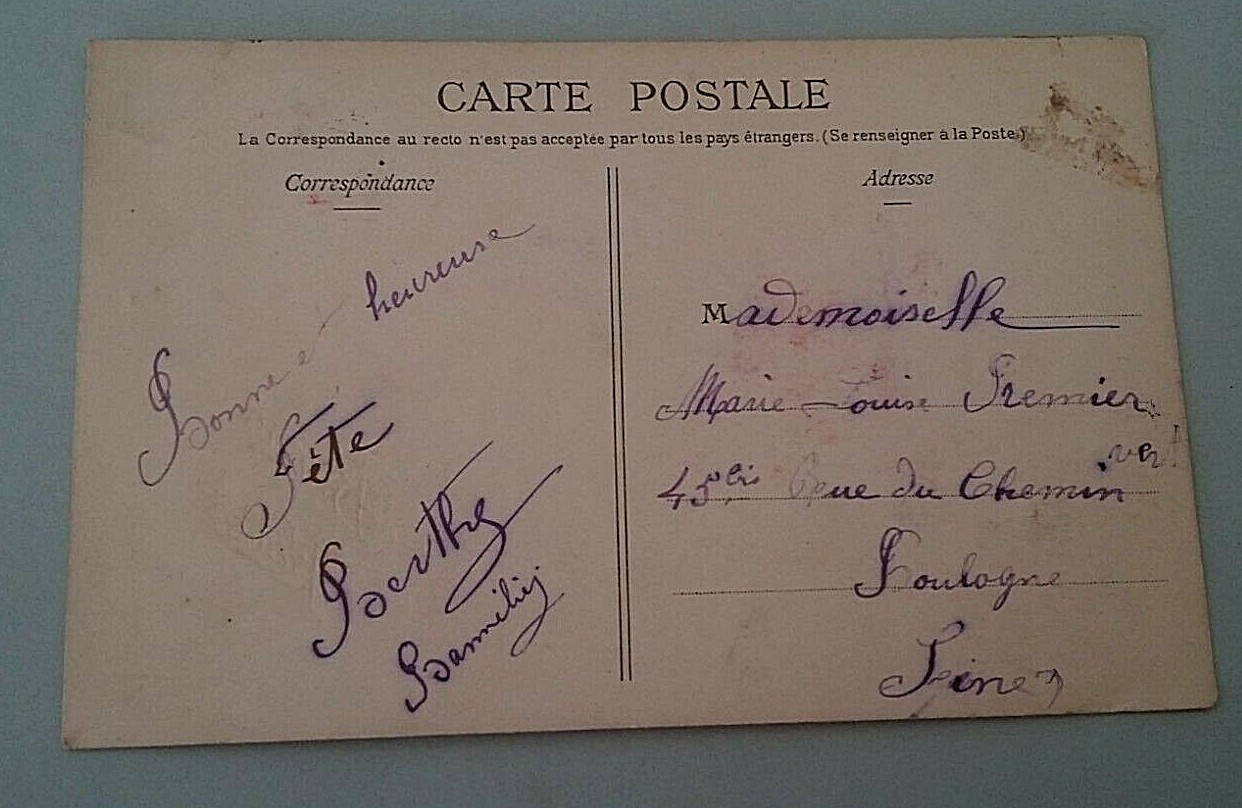 CARTE POSTALE
La Correspondance au recto n'est pas acceptée par tous les pays étrangers. (Se renseigner à la Poste.)
Correspondance
Bonne e heureuse
Fête
Berthe
Adresse
Mademoiselle
Marie-Louise Premier
45 bis Rue du Chemin ver
Boulogne
Seine